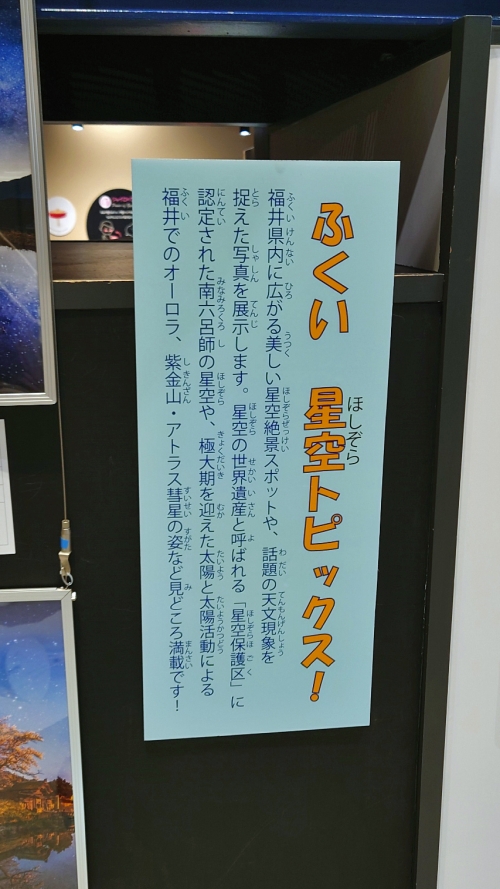 ふくい 星空トピックス!
福井県内に広がる美しい星空絶景スポットや、話題の天文現象を
捉えた写真を展示します。星空の世界遺産と呼ばれる「星空保護区」に
認定された南六呂師の星空や、極大期を迎えた太陽と太陽活動による
福井でのオーロラ、紫金山・アトラス彗星の姿など見どころ満載です!